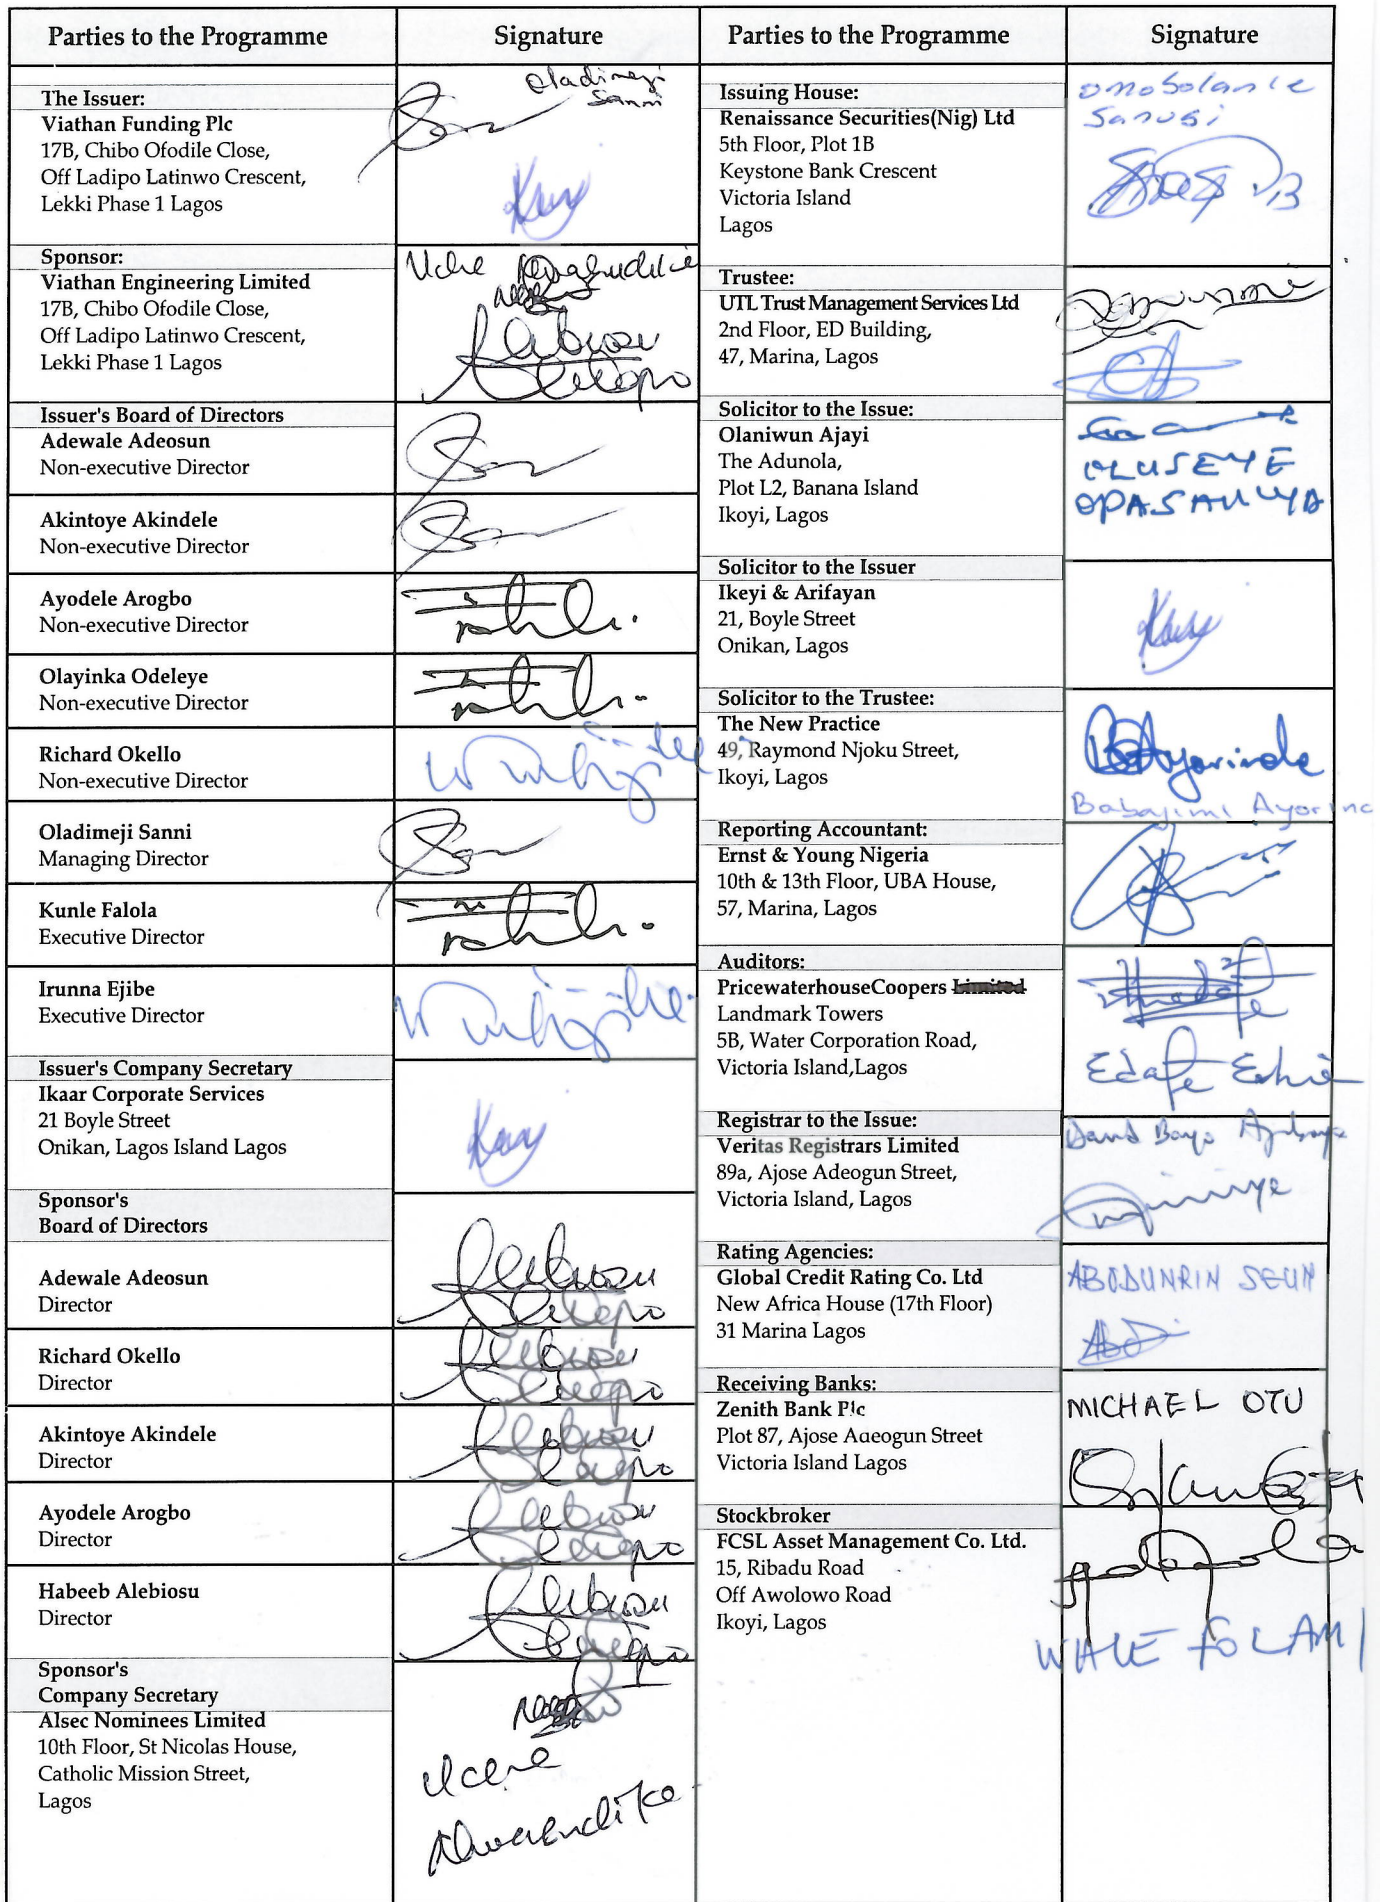 Parties to the Programme
Signature
The Issuer:
Viathan Funding Plc
17B, Chibo Ofodile Close,
Off Ladipo Latinwo Crescent,
Lekki Phase 1 Lagos
Oladimeji
Sanni
Sponsor:
Viathan Engineering Limited
17B, Chibo Ofodile Close,
Off Ladipo Latinwo Crescent,
Lekki Phase 1 Lagos
Uche
Issuer's Board of Directors
Adewale Adeosun
Non-executive Director
Akintoye Akindele
Non-executive Director
Ayodele Arogbo
Non-executive Director
Olayinka Odeleye
Non-executive Director
Richard Okello
Non-executive Director
Oladimeji Sanni
Managing Director
Kunle Falola
Executive Director
Irunna Ejibe
Executive Director
Issuer's Company Secretary
Ikaar Corporate Services
21 Boyle Street
Onikan, Lagos Island Lagos
Sponsor's
Board of Directors
Adewale Adeosun
Director
Richard Okello
Director
Akintoye Akindele
Director
Ayodele Arogbo
Director
Habeeb Alebiosu
Director
Sponsor's
Company Secretary
Alsec Nominees Limited
10th Floor, St Nicolas House,
Catholic Mission Street,
Lagos
Uche
Parties to the Programme
Signature
Issuing House:
Renaissance Securities(Nig) Ltd
5th Floor, Plot 1B
Keystone Bank Crescent
Victoria Island
Lagos
Omobolanle
Sanusi
Trustee:
UTL Trust Management Services Ltd
2nd Floor, ED Building,
47, Marina, Lagos
Solicitor to the Issue:
Olaniwun Ajayi
The Adunola,
Plot L2, Banana Island
Ikoyi, Lagos
OLUSEYE
OPASANYA
Solicitor to the Issuer
Ikeyi & Arifayan
21, Boyle Street
Onikan, Lagos
Solicitor to the Trustee:
The New Practice
49, Raymond Njoku Street,
Ikoyi, Lagos
Babajimi Ayorinc
Reporting Accountant:
Ernst & Young Nigeria
10th & 13th Floor, UBA House,
57, Marina, Lagos
Auditors:
PricewaterhouseCoopers Limited
Landmark Towers
5B, Water Corporation Road,
Victoria Island,Lagos
Edafe
Registrar to the Issue:
Veritas Registrars Limited
89a, Ajose Adeogun Street,
Victoria Island, Lagos
David Bayo
Rating Agencies:
Global Credit Rating Co. Ltd
New Africa House (17th Floor)
31 Marina Lagos
ABODUNRIN SEUN
Receiving Banks:
Zenith Bank Plc
Plot 87, Ajose Adeogun Street
Victoria Island Lagos
MICHAEL OTU
Stockbroker
FCSL Asset Management Co. Ltd.
15, Ribadu Road
Off Awolowo Road
Ikoyi, Lagos
WALE FOLAMI